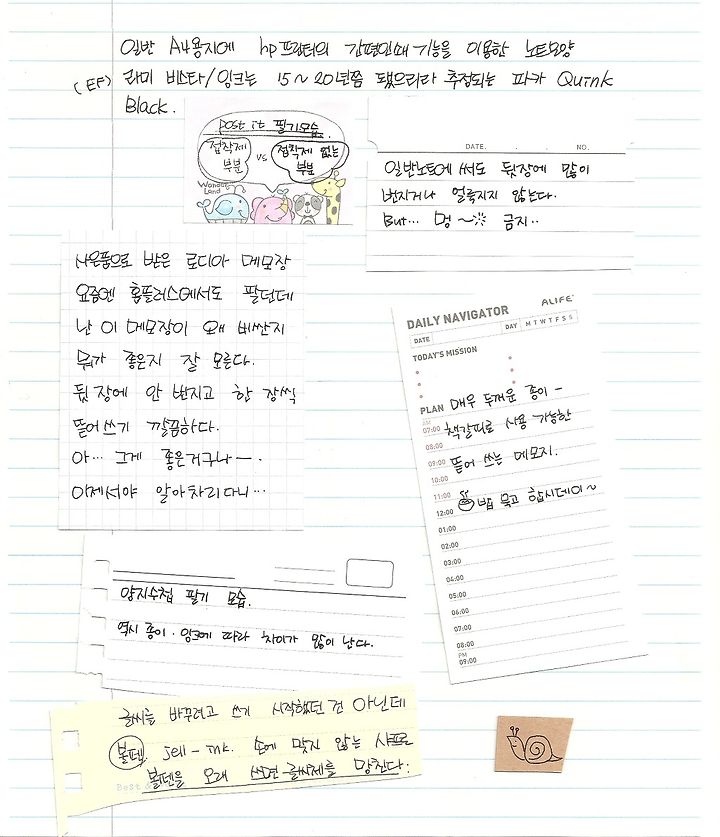 일반 A4용지에 hp프린터의 간편인쇄기능을 이용한 노트모양
(EF) 라미 비스타/잉크는 15~20년쯤 됐으리라 추정되는 파카 Quink
Black.
post it 필기모습.
접착제 부분 vs 접착제 없는 부분
Wonder Land
DATE. . . NO.
일반노트에 써도 뒷장에 많이
번지거나 얼룩지지 않는다.
But... 멍~ 금지..
사은품으로 받은 로디아 메모장
요즘엔 홈플러스에서도 팔던데
난 이 메모장이 왜 비싼지
뭐가 좋은지 잘 모른다.
뒷장에 안 번지고 한 장씩
뜯어쓰기 깔끔하다.
아... 그게 좋은거구나ー.
이제서야 알아차리다니...
DAILY NAVIGATOR ALIFE
DATE DAY M T W T F S S
TODAY'S MISSION
PLAN 매우 두꺼운 종이 -
AM
07:00 책갈피로 사용 가능한
08:00
09:00 뜯어 쓰는 메모지.
10:00
11:00 밥 묵고 합시데이~
12:00
01:00
02:00
03:00
04:00
05:00
06:00
07:00
08:00
PM
09:00
양지수첩 필기 모습.
역시 종이·잉크에 따라 차이가 많이 난다.
글씨를 바꾸려고 쓰기 시작했던 건 아닌데
볼펜, jell-ink. 손에 맞지 않는 샤프로
볼펜을 오래 쓰면 글씨체를 망친다.
Best